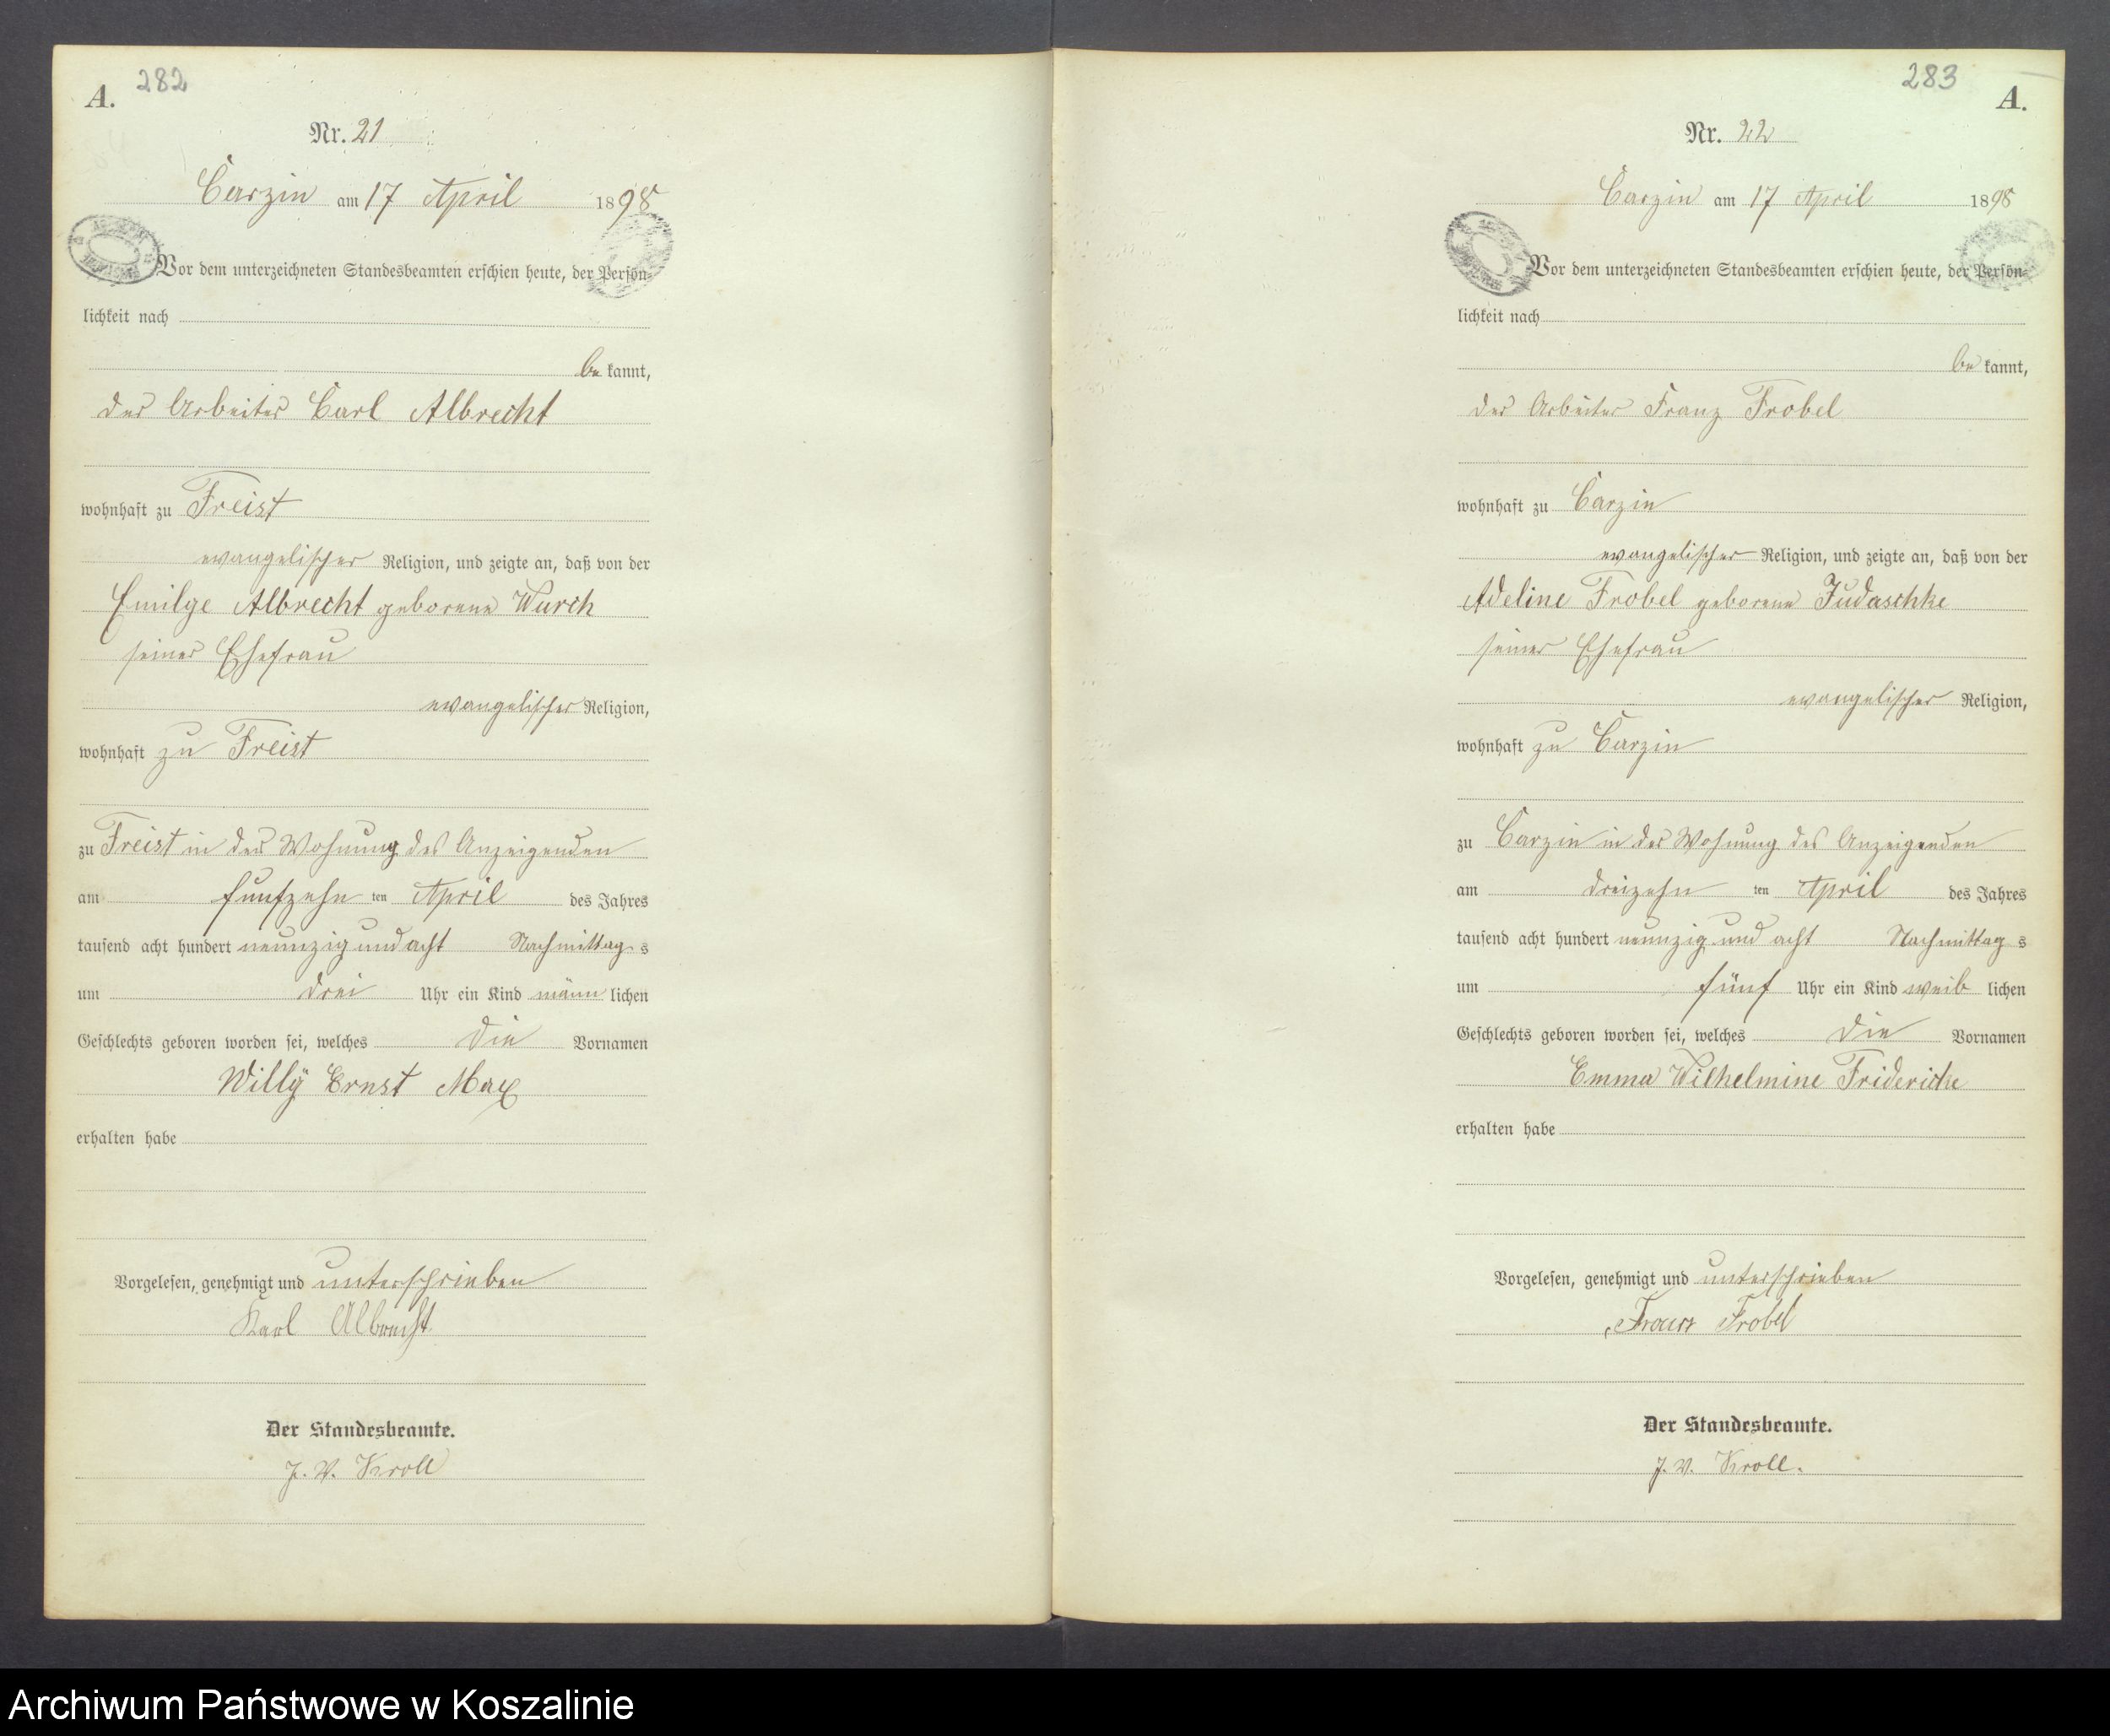 A. 282
Nr. 21
Carzin am 17 April 1898
Vor dem unterzeichneten Standesbeamten erschien heute, der Persön-
lichkeit nach
be kannt,
der Arbeiter Carl Albrecht
wohnhaft zu Freist
evangelischer Religion, und zeigte an, daß von der
Emilge Albrecht geborene Wurch
seiner Ehefrau
evangelischer Religion,
wohnhaft zu Freist
zu Freist in der Wohnung des Anzeigenden
am fünfzehn ten April des Jahres
tausend acht hundert neunzig und acht Nachmittag s
um drei Uhr ein Kind männ lichen
Geschlechts geboren worden sei, welches die Vornamen
Willÿ Ernst Max
erhalten habe
Vorgelesen, genehmigt und unterschrieben
Karl Albrecht
Der Standesbeamte.
J. V. Kroll
283 A.
Nr. 22
Carzin am 17 April 1898
Vor dem unterzeichneten Standesbeamten erschien heute, der Persön-
lichkeit nach
be kannt,
der Arbeiter Franz Frobel
wohnhaft zu Carzin
evangelischer Religion, und zeigte an, daß von der
Adeline Frobel geborene Judaschke
seiner Ehefrau
evangelischer Religion,
wohnhaft zu Carzin
zu Carzin in der Wohnung des Anzeigenden
am dreizehn ten April des Jahres
tausend acht hundert neunzig und acht Nachmittag s
um fünf Uhr ein Kind weib lichen
Geschlechts geboren worden sei, welches die Vornamen
Emma Wilhelmine Fridericke
erhalten habe
Vorgelesen, genehmigt und unterschrieben
Franz Frobel
Der Standesbeamte.
J. V. Kroll.
Archiwum Państwowe w Koszalinie